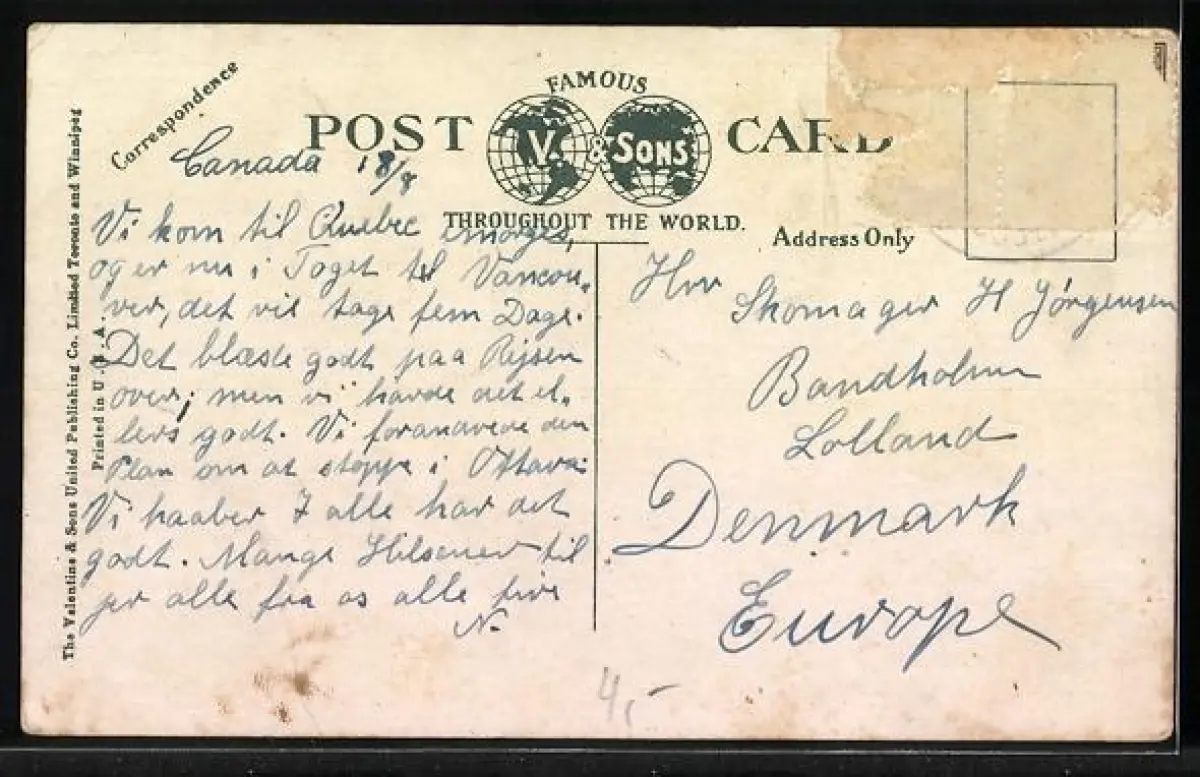 Correspondence
POST CARD
FAMOUS
V. & SONS
THROUGHOUT THE WORLD.
Address Only
The Valentine & Sons United Publishing Co. Limited Toronto and Winnipeg
Printed in U.S.A.
Canada 18/8
Vi kom til Quebec imorges,
og er nu i Toget til Vancou-
ver, det vil tage fem Dage.
Det blæste godt paa Rejsen
over; men vi havde det el-
lers godt. Vi forandrede den
Plan om at stoppe i Ottava.
Vi haaber I alle har det
godt. Mange Hilsener til
jer alle fra os alle fire
N.
Hrr
Skomager H Jörgensen
Bandholm
Lolland
Denmark
Europe
4,-